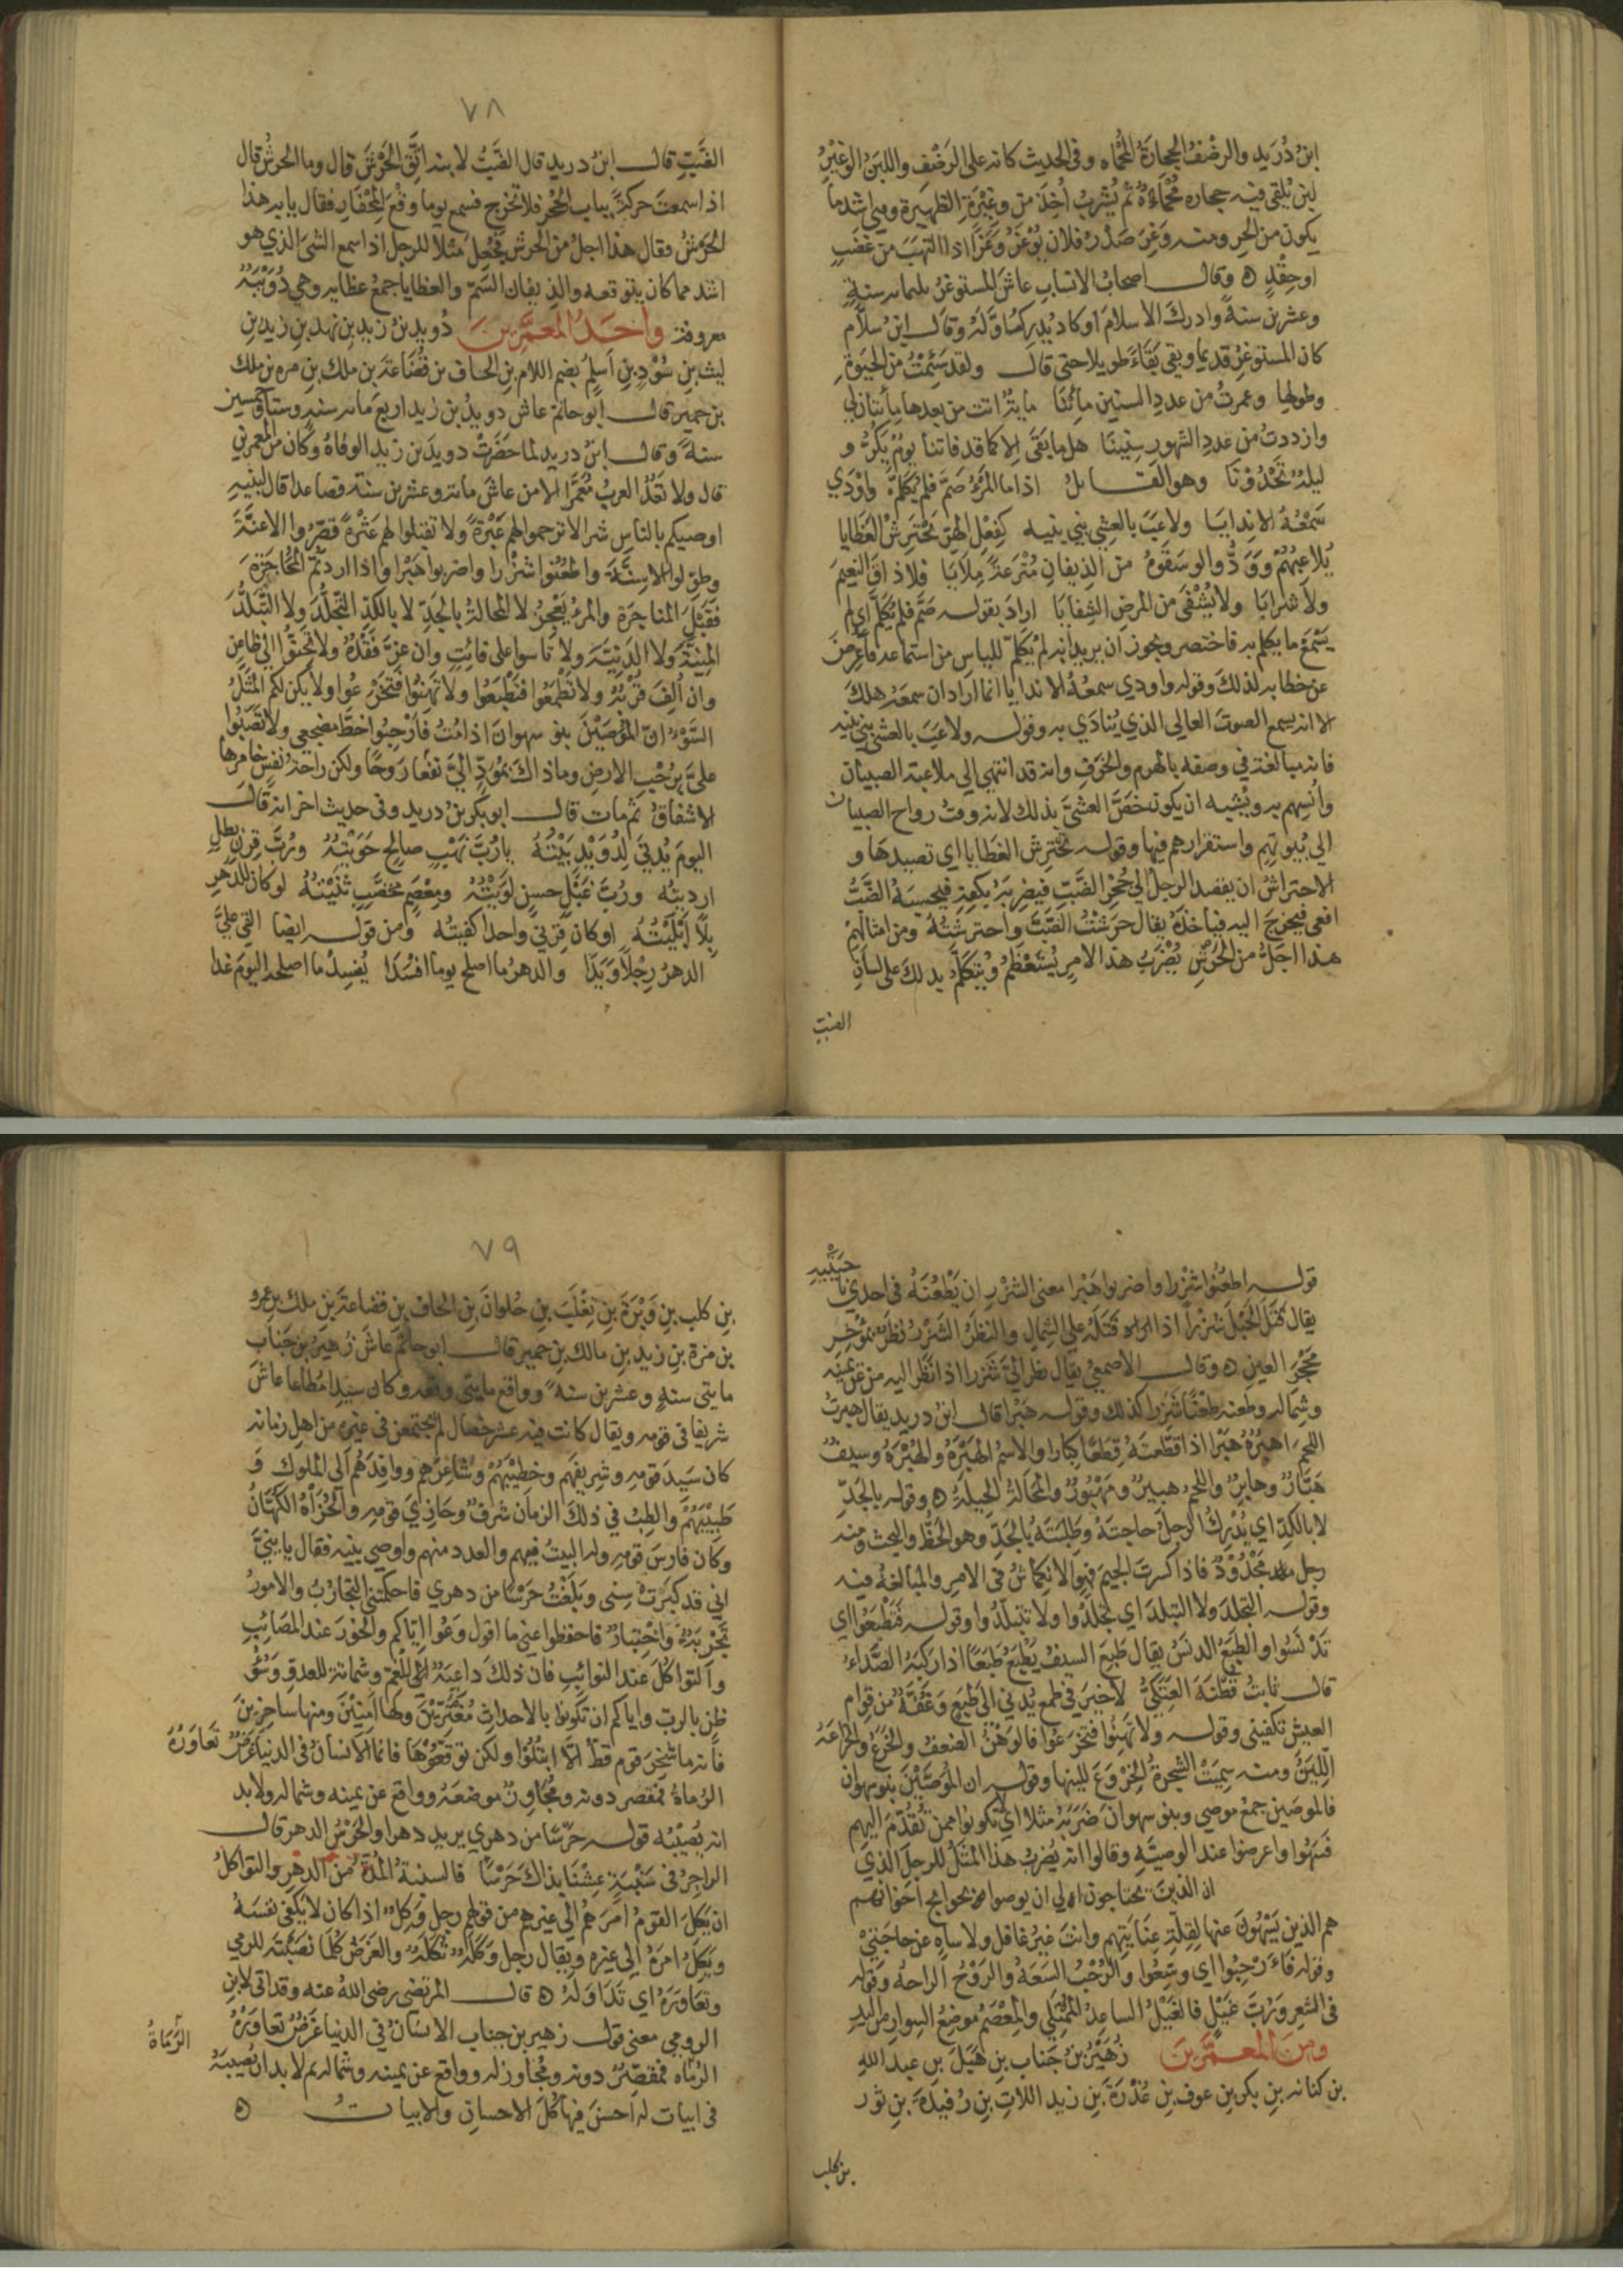 ابنُ دُرَيد والرضْفُ الحِجارَةُ المُحْماه وفى الحديث كانه على الرَضْفِ واللبَنُ الوَغِيْرُ
لبن يُلقى فيه حجاره مُحْماةٌ ثم يُشربُ أُخِذَ من وغْرَةِ الظهيرة وهي اشد ما
يكون من الحرِ ومنه وَغِرَ صَدْرُ فلان يَوْغَرُ وَغَرًا اذا التهَبَ من غضَبٍ
اوحِقْدٍ ه وقال اصحابُ الانسابِ عاشَ المستوغرُ ثلثمايه سنةٍ
وعشرين سنةً وادركَ الاسلامَ اوكاد يُدْرِك اوَّلَهُ وقال ابنُ سلاَّم
كان المستوغِرُ قديما وبقى بَقَاءً طويلا حتى قال ولقد سَئِمْتُ من الحيوةِ
وطولِها وعَمِرتُ من عددِ السنين مائِنَا مايةٌ اتت من بعدها مِأئتان لي
وازددتُ من عددِ الشهورِ سنينَا هل ما بَقَى الا كما قد فاتنا يومٌ يَكُرُّ و
ليلةٌ تَحْدُوْنَا وهو القائلُ اذا ما المَرْءُ صَمَّ فلم يُكَلَّمْ واوْدَي
سَمْعُهُ الا نِدايَا ولاعَبَ بالعشِي بني بنيه كفِعْلِ الهِرّ يَحْتَرِشُ العَظايا
يُلاعِبُهُمْ ووَدُّوا لوسَقَوهُ من الذِيفانِ مُتْرَعةً مِلايَا فلا ذاقَ النعيمَ
ولا شرابَا ولا يُشْفَى من المرضِ الشِفايَا ارادَ بقوله صَمَّ فلم يُكَلَّمْ اي لم
يَسْمَعْ ما يُكلم به فاختصر ويجوز ان يريد انه لم يُكَلَّمْ للياسِ من استماعه فأُعرِضَ
عن خطابه لذلكَ وقوله واودي سمعُهُ الا ندايا انما اراد ان سمعَهُ هلكَ
الا انه يسمع الصوتَ العالي الذي يُنادَي به وقوله ولاعَبَ بالعشى بني بنيه
فانه مبالغة في وصفه بالهرم والخَرَفِ وانه قد انتهى الي ملاعبة الصبيان
وأنسِهم به ويُشبه ان يكون خَصَّ العشىَّ بذلك لانه وقتُ رواح الصبيان
الي بُيُوتهم واستقرارهم فيها وقوله يحْتَرِش العَظايا اي تصيدها و
الاحتراشُ ان يقصد الرجلُ الي جُحْرِ الضَّبِّ فيضرِبَهُ بكفِه فيحسبَهُ الضَّبُّ
افعى فيخرجَ اليه فيأخذَهُ يقال حَرَشْتُ الضَّبَّ واحترشْتُهُ ومن امثالِهِمْ
هذا اجَلُّ من الحَرْشِ يُضْرَبُ هذا الامرِ يُستَعْظَمُ ويُتكلّمُ بذلكَ على لسانِ
الضَّبِّ
٧٨
الضَّبِّ قال ابنُ دريد قال الضَّبُّ لابنه اتَّقِ الحَرْشَ قال وما الحرشُ قال
اذا سمعتَ حركةً بباب الجُحْرِ فلا تخرج فسمع يوما وقْعَ المِحْفَارِ فقال يا ابه هذا
الحَرْشُ فقال هذا اجلُّ من الحرشِ فجُعِل مَثَلا للرجل اذا سمع الشىَ الذي هو
اشد مما كان يتوقعه والذِيفان السَّمّ والعظايا جمعُ عظايه وهي دُوَيْبَّةٌ
معروفة واحَدُ المعمَّرِينَ دُويد بنُ زيد بن نهد بن زيد بنِ
ليث بنِ سُوْدِ بنِ اَسلُمِ بضم اللام بنِ الحاف بن قُضَاعةَ بن ملك بنِ مره بن ملك
بن حمير قال ابو حاتم عاش دويدُ بن زيد اربعَ مايه سنه وستا وخمسين
سنةً وقال ابنُ دريد لما حَضَرَتْ دويدَ بن زيدٍ الوفاةُ وكان من المعمرين
قال ولا تَعُدُّ العربُ مُعَمَّرا الا من عاشَ ماية وعشرين سنة فصاعدا قال لبنيهِ
اوصيكم بالناسِ شرا لا ترحموا لهم عَبْرةً ولا تقيلوا لهم عَثْرةً قصِّروا الاعنَّةَ
وطوّلوا الاسِنَّةَ واطعُنوا شزْرا واضربوا هَبْرا واذا اردتُمُ المُحاجَزَة
فقَبْلَ المناجَزة والمرءُ يَعْجِزُ لا المَحالةُ بالجَدِّ لا بالكَدِّ التّجلُّدَ ولا التبَلُّدَ
المنِيَّةَ ولا الدَنِيَّةَ ولا تأسوا على فائتٍ وان عزَّ فَقْدُهُ ولا تحِنُّوا الي ظاعِنٍ
وان اُلِفَ قُرْبُهُ ولا تطْمَعُوا فَتَطْبَعُوا ولا تَهِنُوا فتَخْرَعُوا ولا يكن لكم المَثَلُ
السَّوْءُ انّ المُوصَّيْنَ بنو سهوانَ اذا مُتُّ فارْحِبُوا خطَّ مضجعي ولا تضِنُّوا
علىَّ برُحْبِ الارضِ وما ذاكَ بمُؤَدٍّ اليَّ نفْعًا رَوحًا ولكن راحةُ نفسٍ خامَرها
الاشفاقُ ثم مات قال ابو بكر بنُ دريد وفى حديث اخر انه قال
اليومَ يُبْنَي لِدُوَيْدٍ بَيْتُهُ يا رُبَّ نَهْبٍ صالحٍ حَوَيْتُهُ ورُبَّ قِرْنٍ بطلٍ
ارديتُه ورُبَّ غَيْلٍ حسنٍ لَوَيْتُهُ ومِعْصَمٍ مُخضَّبٍ ثَنَيْتُهُ لو كان للدَّهرِ
بِلًا اَبْلَيْتُهُ اوكان قِرْني واحدا كفيتُه ومن قوله ايضا القى عليَّ
الدهرُ رِجْلًا ويَدَا والدهرُ ما اصلح يوما افسَدَا يُفسِدُ ما اصلحه اليومَ غدا
قوله اطعُنُوا شزْرا واضربوا هَبْرا معنى الشزْرِ ان يَطْعُنَهُ فى احدي نا
حيَتَيْهِ
يقال فَتَلَ الحَبْلَ شزْراً اذا فَتَلَهُ على الشِمالِ والنظَرُ الشَزْرُ نظَرٌ بمُؤْخِرِ
مَحْجَرِ العينِ ه وقال الاصمعيُّ يقال نظر اليَّ شَزرا اذا نَظَر اليه من عن يمينه
وشِماله وطعنه طَعْنًا شَزْرا كذلك وقوله هَبْرا قال ابنُ دريد يقال هبرتُ
اللحمَ اَهْبُرُهُ هَبْرا اذا قطّعتَهُ قِطَعًا كِبارا والاسمُ الهَبْرَةُ والهُبْرَةُ وسيفٌ
هَبَّارٌ وهابِرٌ واللحم هبيرٌ ومَهْبُورٌ والمحَالةُ الحِيلةُ ه وقوله بالجَدِّ
لا بالكدِّ اي يُدْرِكُ الرجلُ حاجتَهُ وطَلِبَتَهُ بالجَدِّ وهو الحَظُّ والبخت ومنه
رجل مَجْدُوْدٌ فاذا كسرتَ الجيمَ فهو الانكماشُ فى الامرِ والمبالغةُ فيه
وقوله التجلدَ ولا التبلدَ اي تجلَّدُوا ولا تتبلّدُوا وقوله فَتَطْبَعُوا اي
تَدْنَسُوا والطبَعُ الدنَسُ يقال طَبِعَ السيفُ يَطْبَعُ طَبَعًا اذا ركبَهُ الصَّداءُ
قال ثابتُ قُطْنَةَ العَتَكيُّ لا خيرَ في طمعٍ يُدني الى طَبَعٍ وغُفَّةٌ من قِوامِ
العيشِ تكفينى وقوله ولا تَهِنُوا فتخرَعُوا فالوَهْنُ الضعفُ والخَرَعُ والخَراعَةُ
اللِّينُ ومنه سمِيَتْ الشجرةُ الخِرْوَعَ للينها وقوله ان المُوصَّيْنَ بنو سهوان
فالموصَين جمعُ موصى وبنو سهوانَ ضَرَبَهُ مثلا اي لا تكونوا ممن تُقُدِّمَ اليهم
فَسَهُوا واعرضوا عند الوصيَّةِ وقالوا انه يُضربُ هذا المثلُ للرجلِ الذي
ان الذين يحتاجون الي ان يوصوا بحوايج اخوانهم
هم الذين يَسْهُونَ عنها لقِلّةِ عِنَايتِهِم وانتَ غيرُ غافل ولا ساهٍ عن حاجتي
وقوله فارحِبُوا اي وسِّعُوا والرُحْبُ السَعَةُ والرَوْحُ الراحهُ وقوله
فى الشعرِ ورُبَّ غَيْلٍ فالغَيْلُ الساعِدُ المُمْتلي والمِعْصَمُ موضعُ السِوارِ من اليدِ
ومِنَ المعمَّرِينَ زُهَيْرُ بنُ جَنابِ بنِ هُبَلَ بنِ عبد اللهِ
بن كنانه بنِ بكرِ بنِ عوفِ بنِ عُذْرَةَ بنِ زيد اللاّتِ بنِ رُفيدةَ بنِ ثور
بن كلب
٧٩
بنِ كلب بنِ وَبْرَةَ بنِ تغْلِبَ بنِ حُلوانَ بنِ الحاف بنِ قضاعةَ بنِ ملك بن عمرو
بن مرة بنِ زيد بن مالك بنِ حمير قال ابو حاتم عاشَ زُهيرُ بن جَناب
مايتى سنةٍ وعشرين سنه وواقع مايتى وقعه وكان سيدا مُطاعا عاش
شريفا فى قومه ويقال كانت فيه عشر خصال لم يجتمعن فى غيرهِ من اهلِ زمانه
كان سَيدَ قومِه وشريفَهم وخطيْبَهُمْ وشاعِرَهم ووافِدَهُم الي الملوكِ وَ
طَبِيْبَهُمْ والطِبُّ في ذلكَ الزمان شرفٌ وحَازِيَ قومِه والحُزَاةُ الكُهَّانُ
وكان فارسَ قومِه وله البيتُ فيهم والعدد منهم واوصي بنيه فقال يا بنيَّ
اني قد كبَرَتْ سِنى وبَلَغْتُ حَرْسًا من دهري فاحكمَتْني التجارُبُ والامورُ
تَجْرِبَةٌ واخْتِبارٌ فاحفظوا عنى ما اقول وعُوا اياكم والخورَ عند المصَائِبِ
والتواكُلَ عند النوائبِ فان ذلكَ داعِيَةٌ للغَمِّ وشماتة للعدوِّ وسُوْءُ
ظنٍ بالربِّ واياكم ان تكونوا بالاحداثِ مُغْتَرِّيْنَ ولها امِنِيْنَ ومنها ساخِرينَ
فانه ما سَخِرَ قوم قطُّ الّا ابتُلُوا ولكن توقعُوْها فانما الانسانُ فى الدنيا غَرَضٌ تَعاوَرُهُ
الرُماةُ فمقصر دونه ومُجَاوِزٌ موضعَهُ وواقع عن يمينه وشماله ولا بد
انه يُصِيْبُه قوله حَرْسًا من دهري يريد دهرا والحَرْسُ الدهر قال
الراجزُ فى سَنْبةٍ عِشْنا بذاكَ حَرْسَا فالسنبةُ المُدّةُ من الدهرِ والتواكلُ
ان يَكِلَ القومُ امرَهُم الي غيرِهم من قولِهم رجل وَكِلٌ اذا كان لا يَكفى نفسَهُ
ويَكِلُ امرَهُ الي غيره ويقال رجل وُكَلَةٌ تُكَلَةٌ والغَرَضُ كلما نصَبْتَه للرمي
وتعَاوَرَهُ اي تَدَاوَلَهُ ه قال المرتضى رضى اللهُ عنه وقد اتى لابنِ
الرومي معنى قول زهير بن جناب الانسَانُ في الدنيا غرَضٌ تعاورَهُ
الرُّمَاةُ
الرُماه فمقصِّرٌ دونه ومُجاوز له وواقع عن يمينه وشماله ثم لا بد ان تُصيبَهُ
فى ابيات له احسَن فيها كُلَّ الاحسانِ والابيات ه